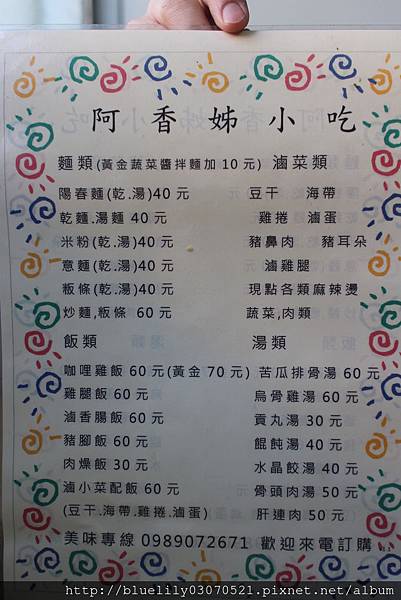 阿香姊小吃
麵類(黃金蔬菜醬拌麵加 10 元) 滷菜類
陽春麵(乾.湯)40 元 豆干 海帶
乾麵.湯麵 40 元 雞捲 滷蛋
米粉(乾.湯)40 元 豬鼻肉 豬耳朵
意麵(乾.湯)40 元 滷雞腿
粄條(乾.湯)40 元 現點各類麻辣燙
炒麵,粄條 60 元 蔬菜,肉類
飯類 湯類
咖哩雞飯 60 元(黃金 70 元) 苦瓜排骨湯 60 元
雞腿飯 60 元 烏骨雞湯 60 元
滷香腸飯 60 元 貢丸湯 30 元
豬腳飯 60 元 餛飩湯 40 元
肉燥飯 30 元 水晶餃湯 40 元
滷小菜配飯 60 元 骨頭肉湯 50 元
(豆干.海帶.雞捲.滷蛋) 肝連肉 50 元
美味專線 0989072671 歡迎來電訂購
http://bluelily03070521.pixnet.net/album